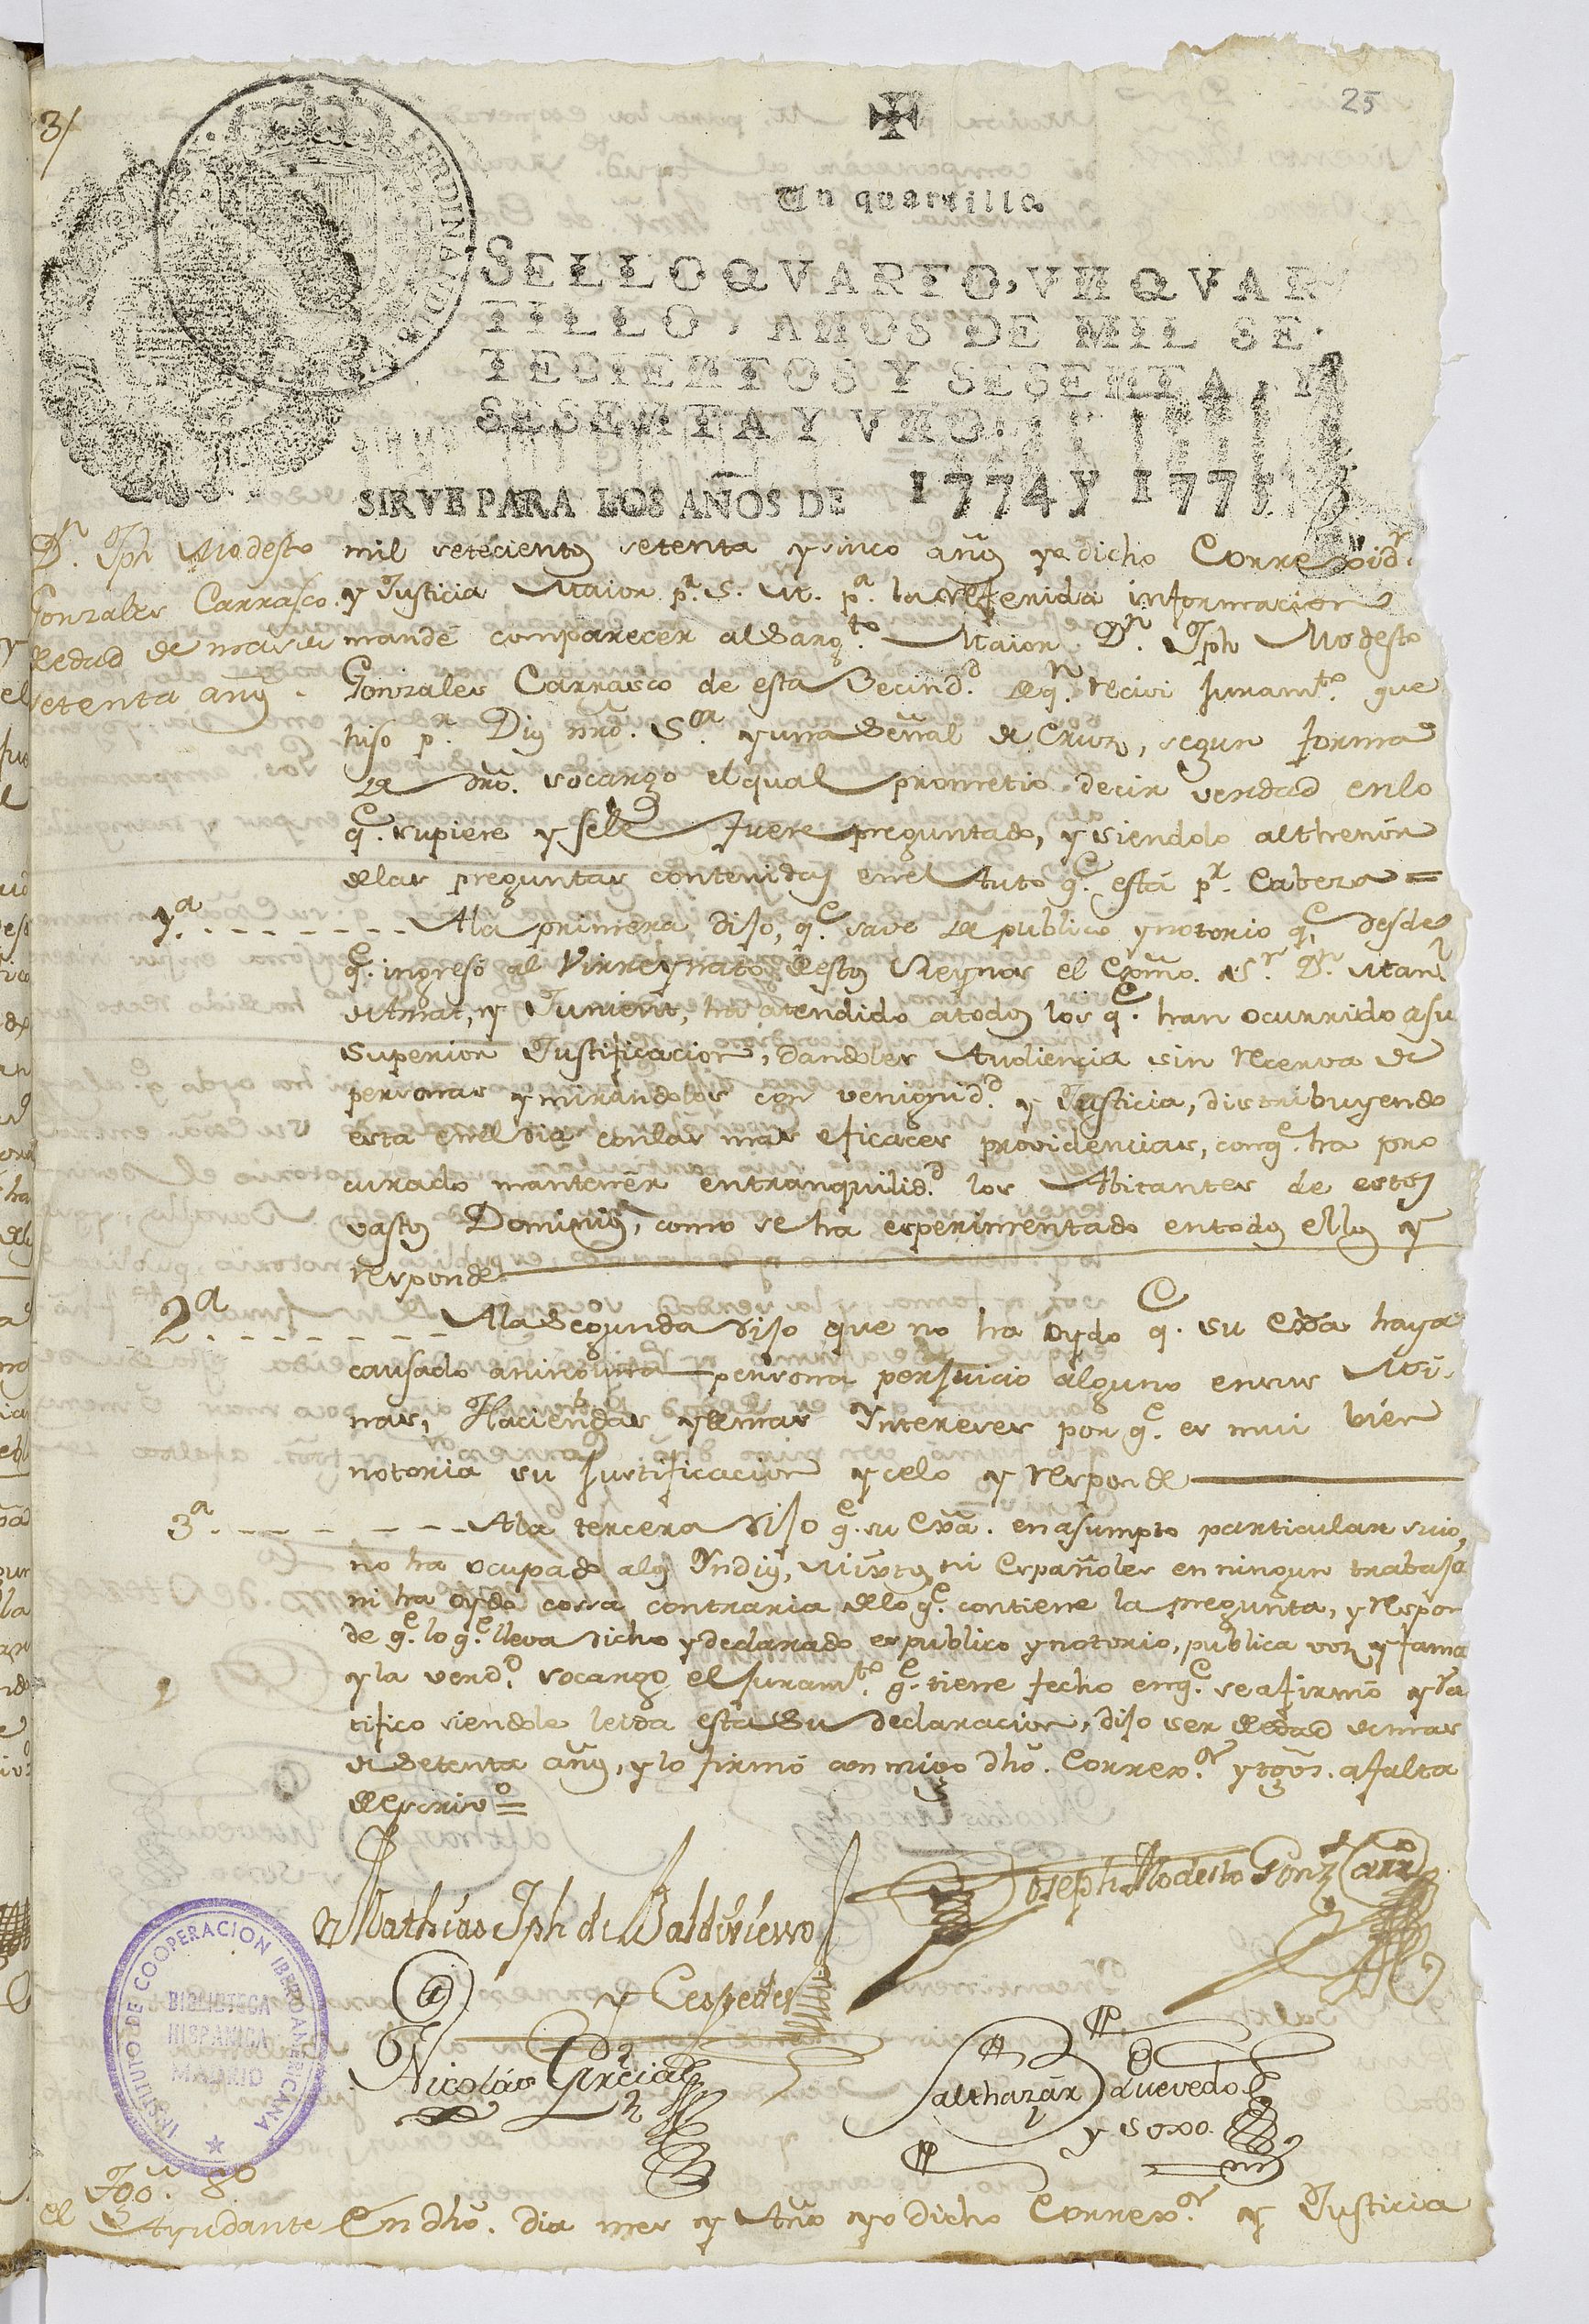 3/
25
Un quartillo
SELLO QVARTO, VN QVAR
TILLO, AÑOS DE MIL SE
TECIENTOS Y SESENTA, Y
SESENTA Y VNO.
SIRVE PARA LOS AÑOS DE 1774 y 1775
Dn. Jph Modesto
Gonzales Carrasco.
de edad de mas de
setenta años.
mil setecientos setenta y sinco años yo dicho Correxidr.
y Justicia Maior pr. S. M. pa. la referida informacion
mandé comparecer al Sargto. Maior Dn. Jph Modesto
Gonzales Carrasco de esta Vecindd. de qn. recivi Juramto. que
hiso pr. Dios nro. Sor. y una Señal de Cruz, segun forma
de dro. so cargo el qual prometio decir verdad en lo
qe. supiere y se le fuere preguntado, y siendolo al thenor
de las preguntas contenidas en el Auto qe. está pr. Cabeza =
1a. - - - - - - - A la primera, dijo, qe. save de publico y notorio qe. desde
qe. ingresó al Virreynato de estos Reynos el Exmo. Sr. Dn. Manl.
de Amat, y Junient, ha atendido a todos los qe. han ocurrido a su
Superior Justificacion, dandoles Audiencia sin recerva de
personas y mirandolos con venignidd. y Justicia, distribuyendo
esta en el dia con las mas eficaces providencias, con qe. ha pro
curado mantenér en tranquilidd. los Abitantes de estos
vastos Dominios, como se ha experimentado en todos ellos y
responde
2a. - - - - - - - A la Segunda dijo que no ha oydo qe. su Exa haya
causado a ninguna persona perjuicio alguno en sus Mi-
nas, Haciendas y demas Yntereses por qe. es mui bien
notoria su justificacion y celo y responde
3a. - - - - - - - A la tercera dijo qe. su Exâ. en asumpto particular suio,
no ha ocupado a los Yndios, Mixtos, ni Españoles en ningun trabajo
ni ha oydo cosa contraria de lo qe. contiene la pregunta, y respon
de qe. lo qe. lleva dicho y declarado es publico y notorio, publica voz y fama
y la verdd. so cargo el Juramto. qe. tiene fecho en qe. se afirmó y ra
tifico siendole leida esta Su declaracion, dijo ser de edad de mas
de Setenta años, y lo firmó con migo dho. Correxor. y tgos. a falta
de Escrivo. =
Mathias Jph de Baldivieso
y Cespedes
Joseph Modesto Gonz. Carrco
Nicolás Garcia
Balthazár Quevedo
y Soxo.
INSTITUTO DE COOPERACION IBEROAMERICANA
BIBLIOTECA
HISPANICA
MADRID
Tgo. 8o
el Ayudante
En dho. dia mes y Año yo dicho Correxor. y Justicia